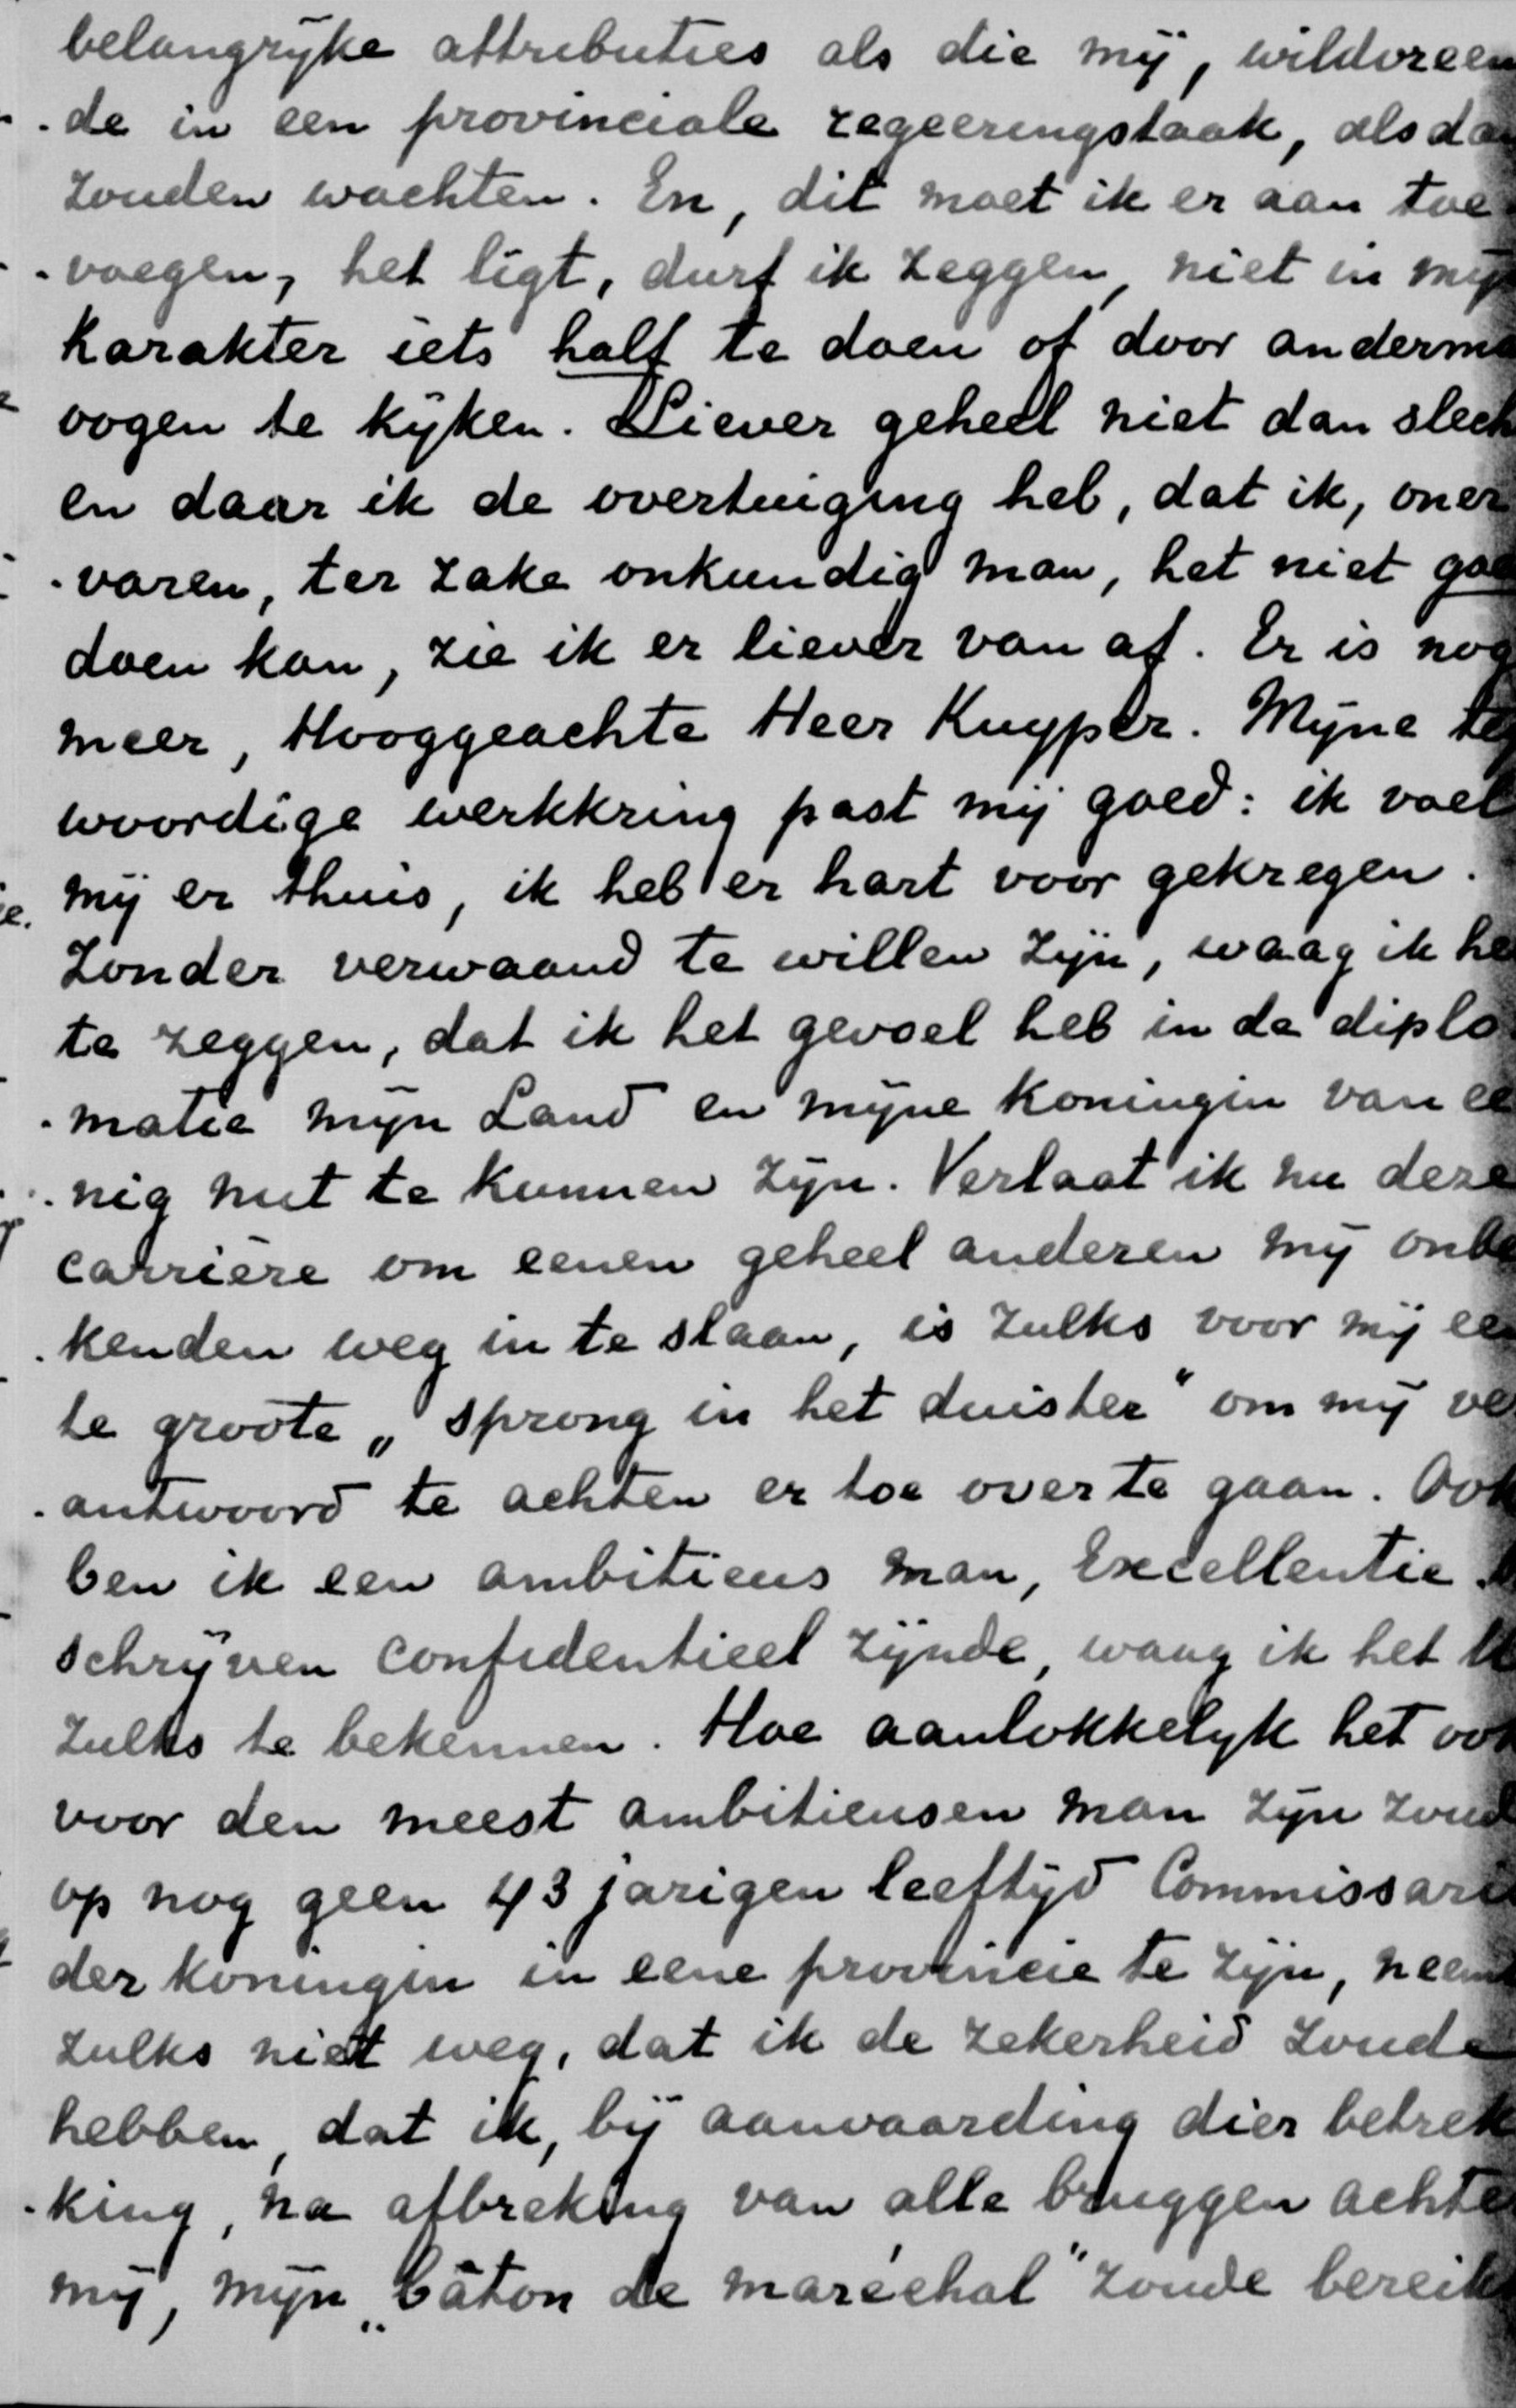 belangrijke attributies als die mij, wildvreem
-de in een provinciale regeeringstaak, als dan
zouden wachten. En, dit moet ik er aan toe-
-voegen, het ligt, durf ik zeggen, niet in mijn
karakter iets half te doen of door anderma
oogen te kijken. Liever geheel niet dan slech
en daar ik de overtuiging heb, dat ik, oner
-varen, ter zake onkundig man, het niet goe
doen kan, zie ik er liever van af. Er is nog
meer, Hooggeachte Heer Kuyper. Mijne teg
woordige werkkring past mij goed: ik voel
mij er thuis, ik heb er hart voor gekregen.
Zonder verwaand te willen zijn, waag ik he
te zeggen, dat ik het gevoel heb in de diplo
-matie mijn Land en mijne Koningin van ee
-nig nut te kunnen zijn. Verlaat ik nu deze
carrière om eenen geheel anderen mij onbe
-kenden weg in te slaan, is zulks voor mij een
te groote „sprong in het duister" om mij ve
-antwoord te achten er toe over te gaan. Ook
ben ik een ambitieus man, Excellentie.
schrijven confidentieel zijnde, waag ik het U
zulks te bekennen. Hoe aanlokkelijk het ook
voor den meest ambitieusen man zijn zoud
op nog geen 43 jarigen leeftijd Commissaris
der Koningin in eene provincie te zijn, neemt
zulks niet weg, dat ik de zekerheid zoude
hebben, dat ik, bij aanvaarding dier betrek
-king, na afbreking van alle bruggen achte
mij, mijn „bâton de maréchal" zoude bereik